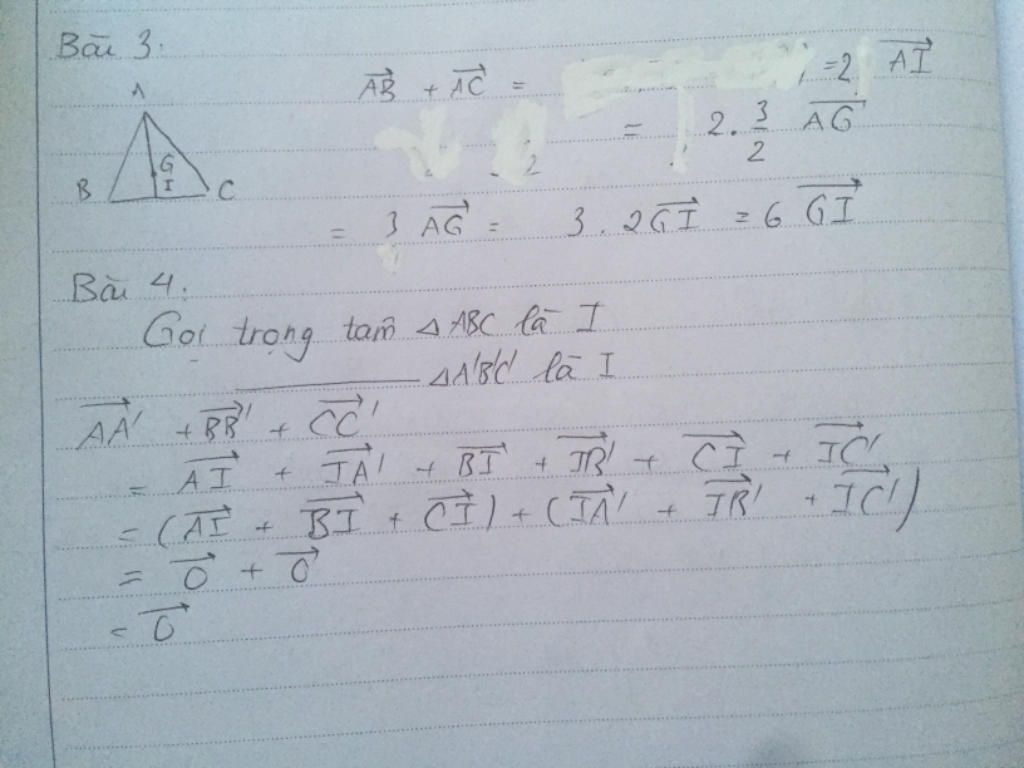 Bài 3:
A
B
G
I
C
AB→ + AC→ = = 2 AI→
= 2 . 3/2 AG→
2
= 3 AG→ = 3 . 2GI→ = 6 GI→
Bài 4:
Gọi trọng tâm △ABC là I
———— △A'B'C' là I
AA'→ + BB'→ + CC'→
= AI→ + IA'→ + BI→ + IB'→ + CI→ + IC'→
= (AI→ + BI→ + CI→) + (IA'→ + IB'→ + IC'→)
= 0→ + 0→
= 0→